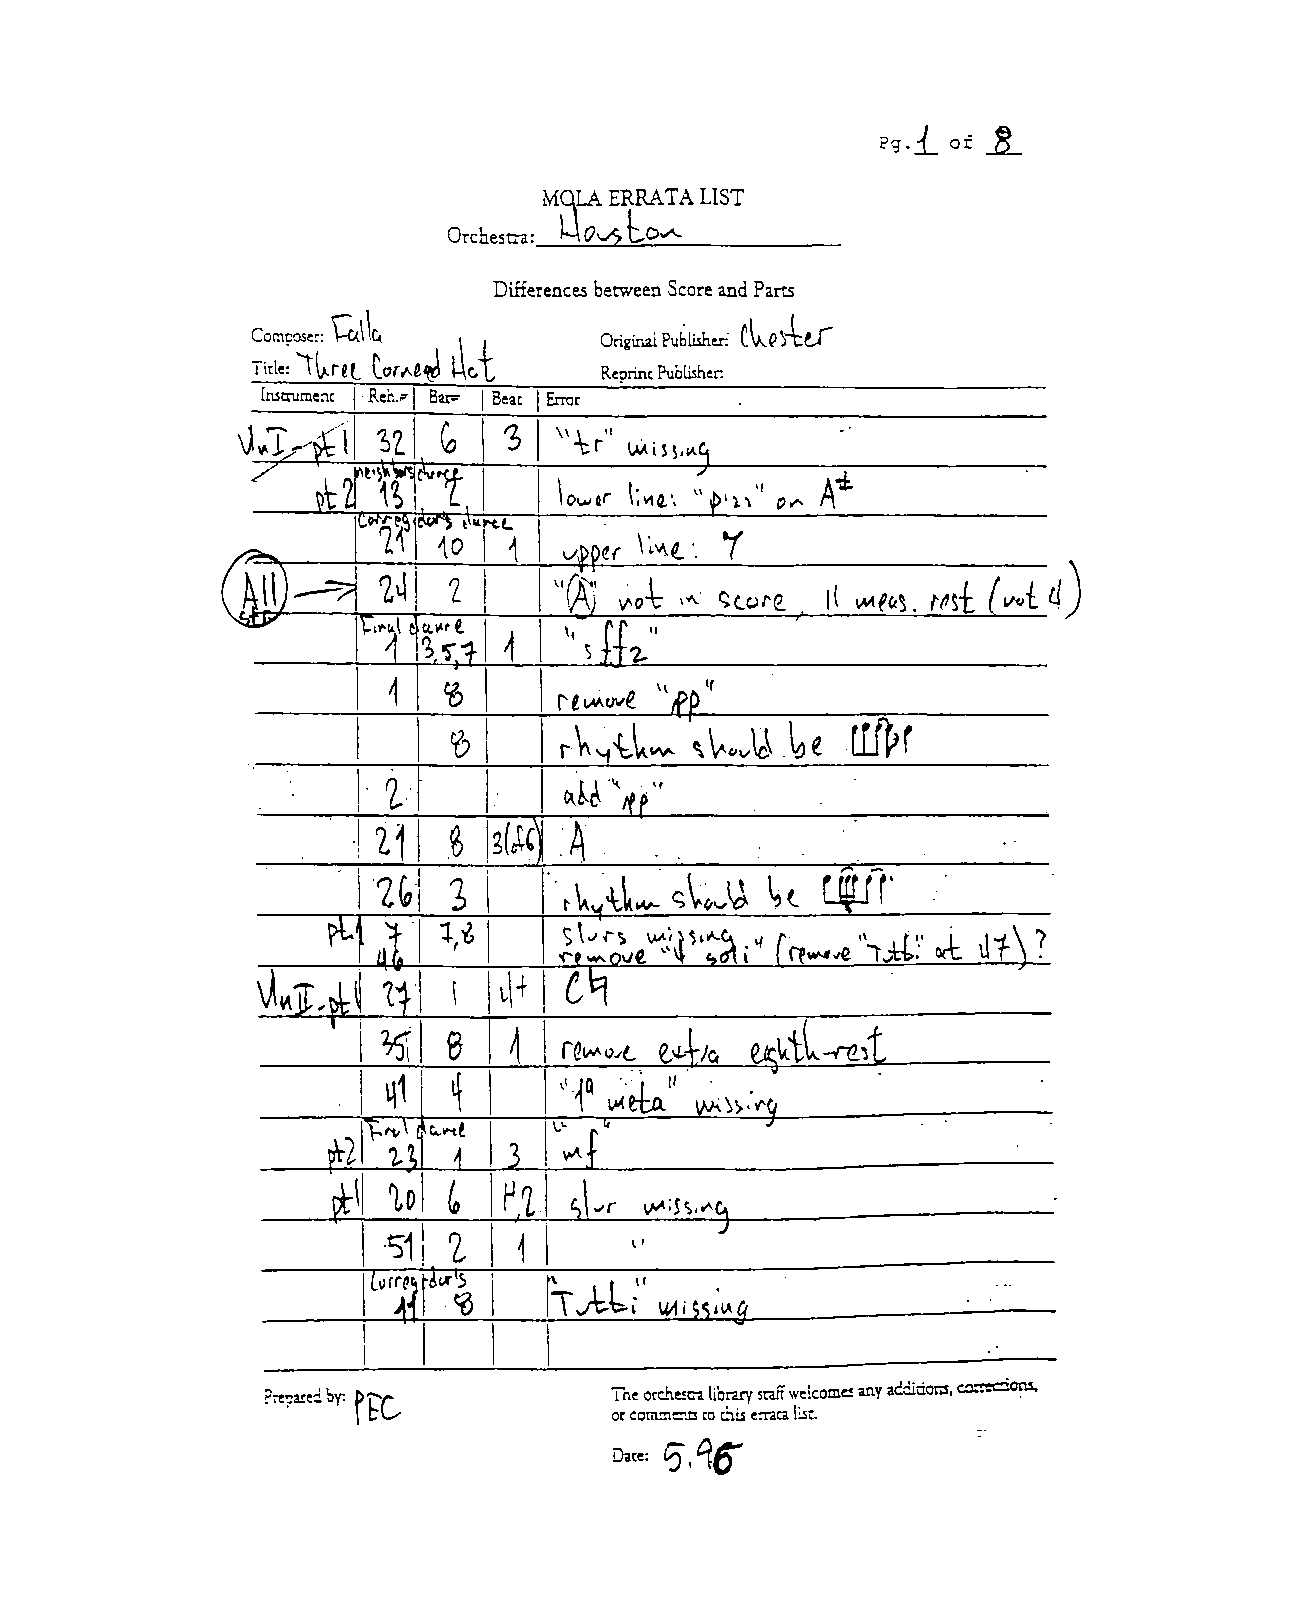 Pg. 1 of 8
MOLA ERRATA LIST
Orchestra: Houston
Differences between Score and Parts
Composer: Falla Original Publisher: Chester
Title: Three Cornered Hat Reprint Publisher:
Instrument Reh.# Bar# Beat Error
Vln I - pt 1 32 6 3 "tr" missing
neighbors dance
pt 2 13 2 lower line: "pizz" on A#
Corregidor's dance
21 10 1 upper line: 7
All str → 24 2 "(A)" not in score, 11 meas. rest (not 4)
Final dance
1 3,5,7 1 "sffz"
1 8 remove "pp"
8 rhythm should be
2 add "pp"
21 8 3(of 6) A
26 3 rhythm should be
pt.1 7 7,8 slurs missing
46 remove "4 soli" (remove "Tutti" at 47)?
Vln II - pt 1 27 1 4+ C♮
35 8 1 remove extra eighth-rest
41 4 "1a meta" missing
Final dance
pt 2 23 1 3 "mf"
pt 1 20 6 1,2 slur missing
51 2 1 "
Corregidor's
11 8 "Tutti" missing
Prepared by: PEC The orchestra library staff welcomes any additions, corrections,
or comments to this errata list.
Date: 5.96